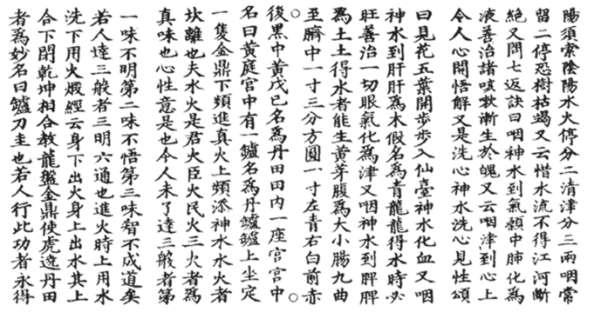 陽須索陰陽水火停分二清津分三兩咽常
留二停惡樹枯竭又云惜水流不得江河斷
絕又問七返訣曰咽神水到氣顙中肺化為
液善治諸咳欬漸生於魄又云咽津到心上
令人心開悟解又是洗心神水洗心見性頌
曰見花五葉開步步入仙臺神水化血又咽
神水到肝肝為木假名為青龍龍得水時必
旺善治一切眼氣化為津又咽神水到脾脾
為土土得水者能生黃芽腹為大小腸九曲
至臍中一寸三分方圓一寸左青右白前赤
後黑中黃戊己名為丹田田内一座宮宮中
名曰黃庭宮中有一鑪名為丹鑪鑪上坐定
一隻金鼎下頰進真火上頰添神水水火者
坎離也夫水火是君火臣火民火三火者為
真味也心性意是也今人未了達三般者第
一味不明第二味不悟第三味智不成道矣
若人達三般者三明六通也進火時上用水
洗下用火煅經云身下出火身上出水其上
合下閉乾坤相合教龍盤金鼎使虎遶丹田
者為妙名曰鑪刀圭也若人行此功者永得